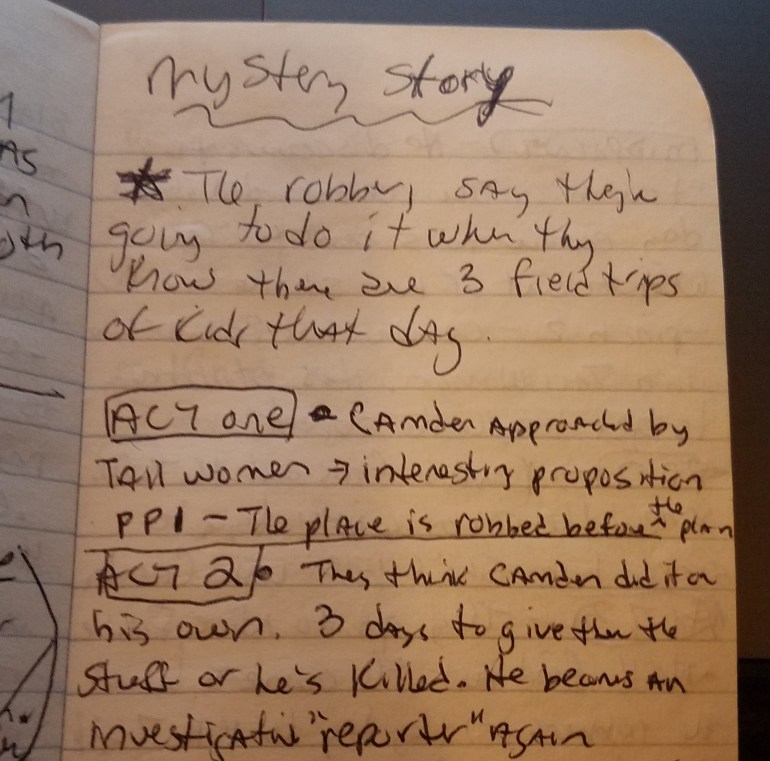 Mystery Story
The robbery say they're
going to do it when they
know there are 3 field trips
of kids that day.
ACT one - CAmden Approached by
TAll women → interesting proposition
PP1 - The place is robbed before the plan
ACT 2 They think CAmden did it on
his own. 3 days to give them the
stuff or he's killed. He becomes An
investigative "reporter" AgAin
As